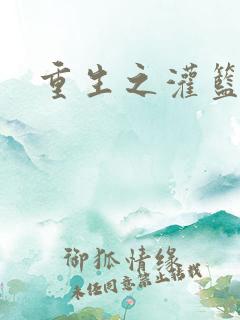 重生之灌籃
御狐情缘
未经同意禁止转载